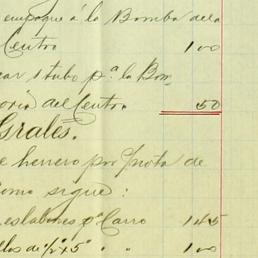 empaque á la Bomba dela
Centro 1 00
car 1 tubo pª la Bom
oria del Centro 50
Grales.
e herrero por pᵗᵒta de
como sigue:
eslabones pª Carro 1 45
llos de ½"x5" " " 1 00